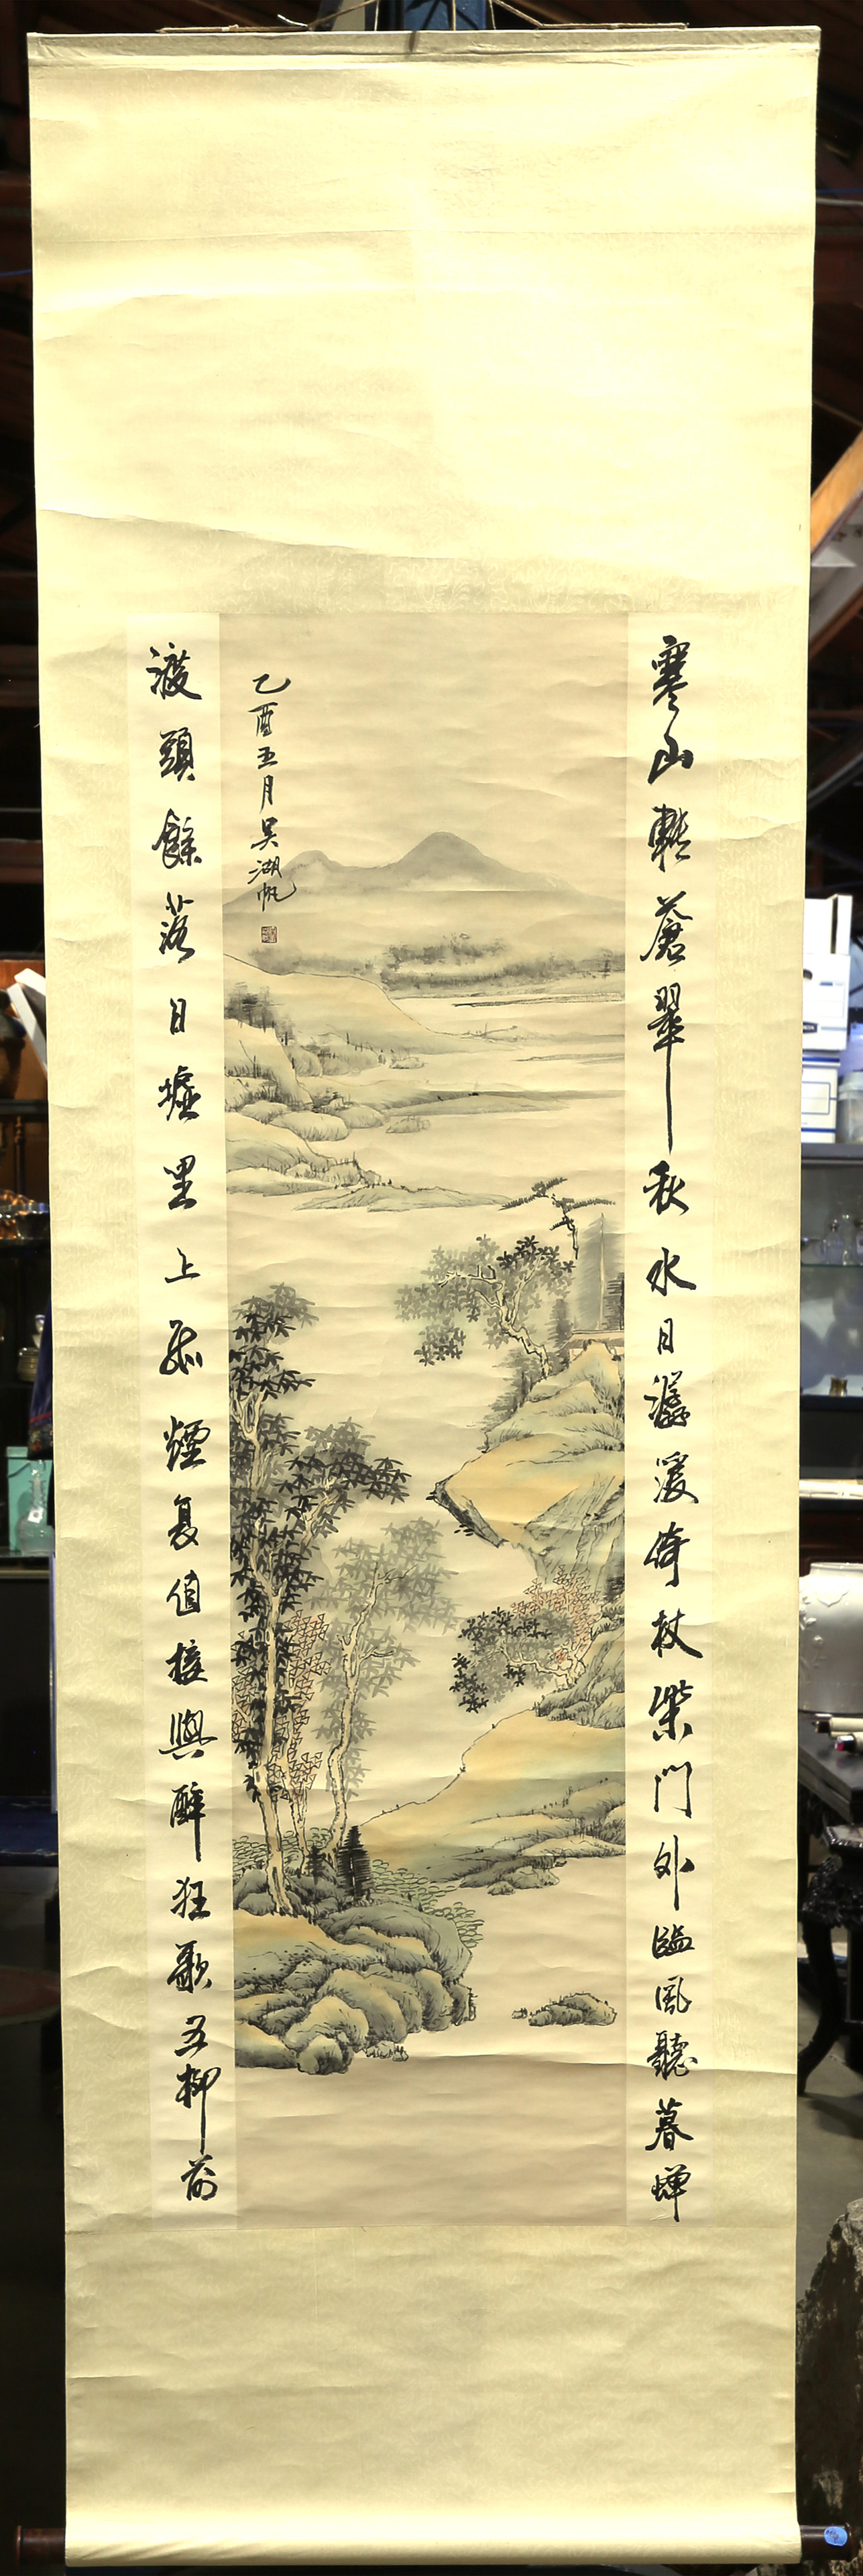 寒山轉蒼翠秋水日潺湲倚杖柴門外臨風聽暮蟬
乙酉五月吳湖帆
渡頭餘落日墟里上孤煙复值接輿醉狂歌五柳前